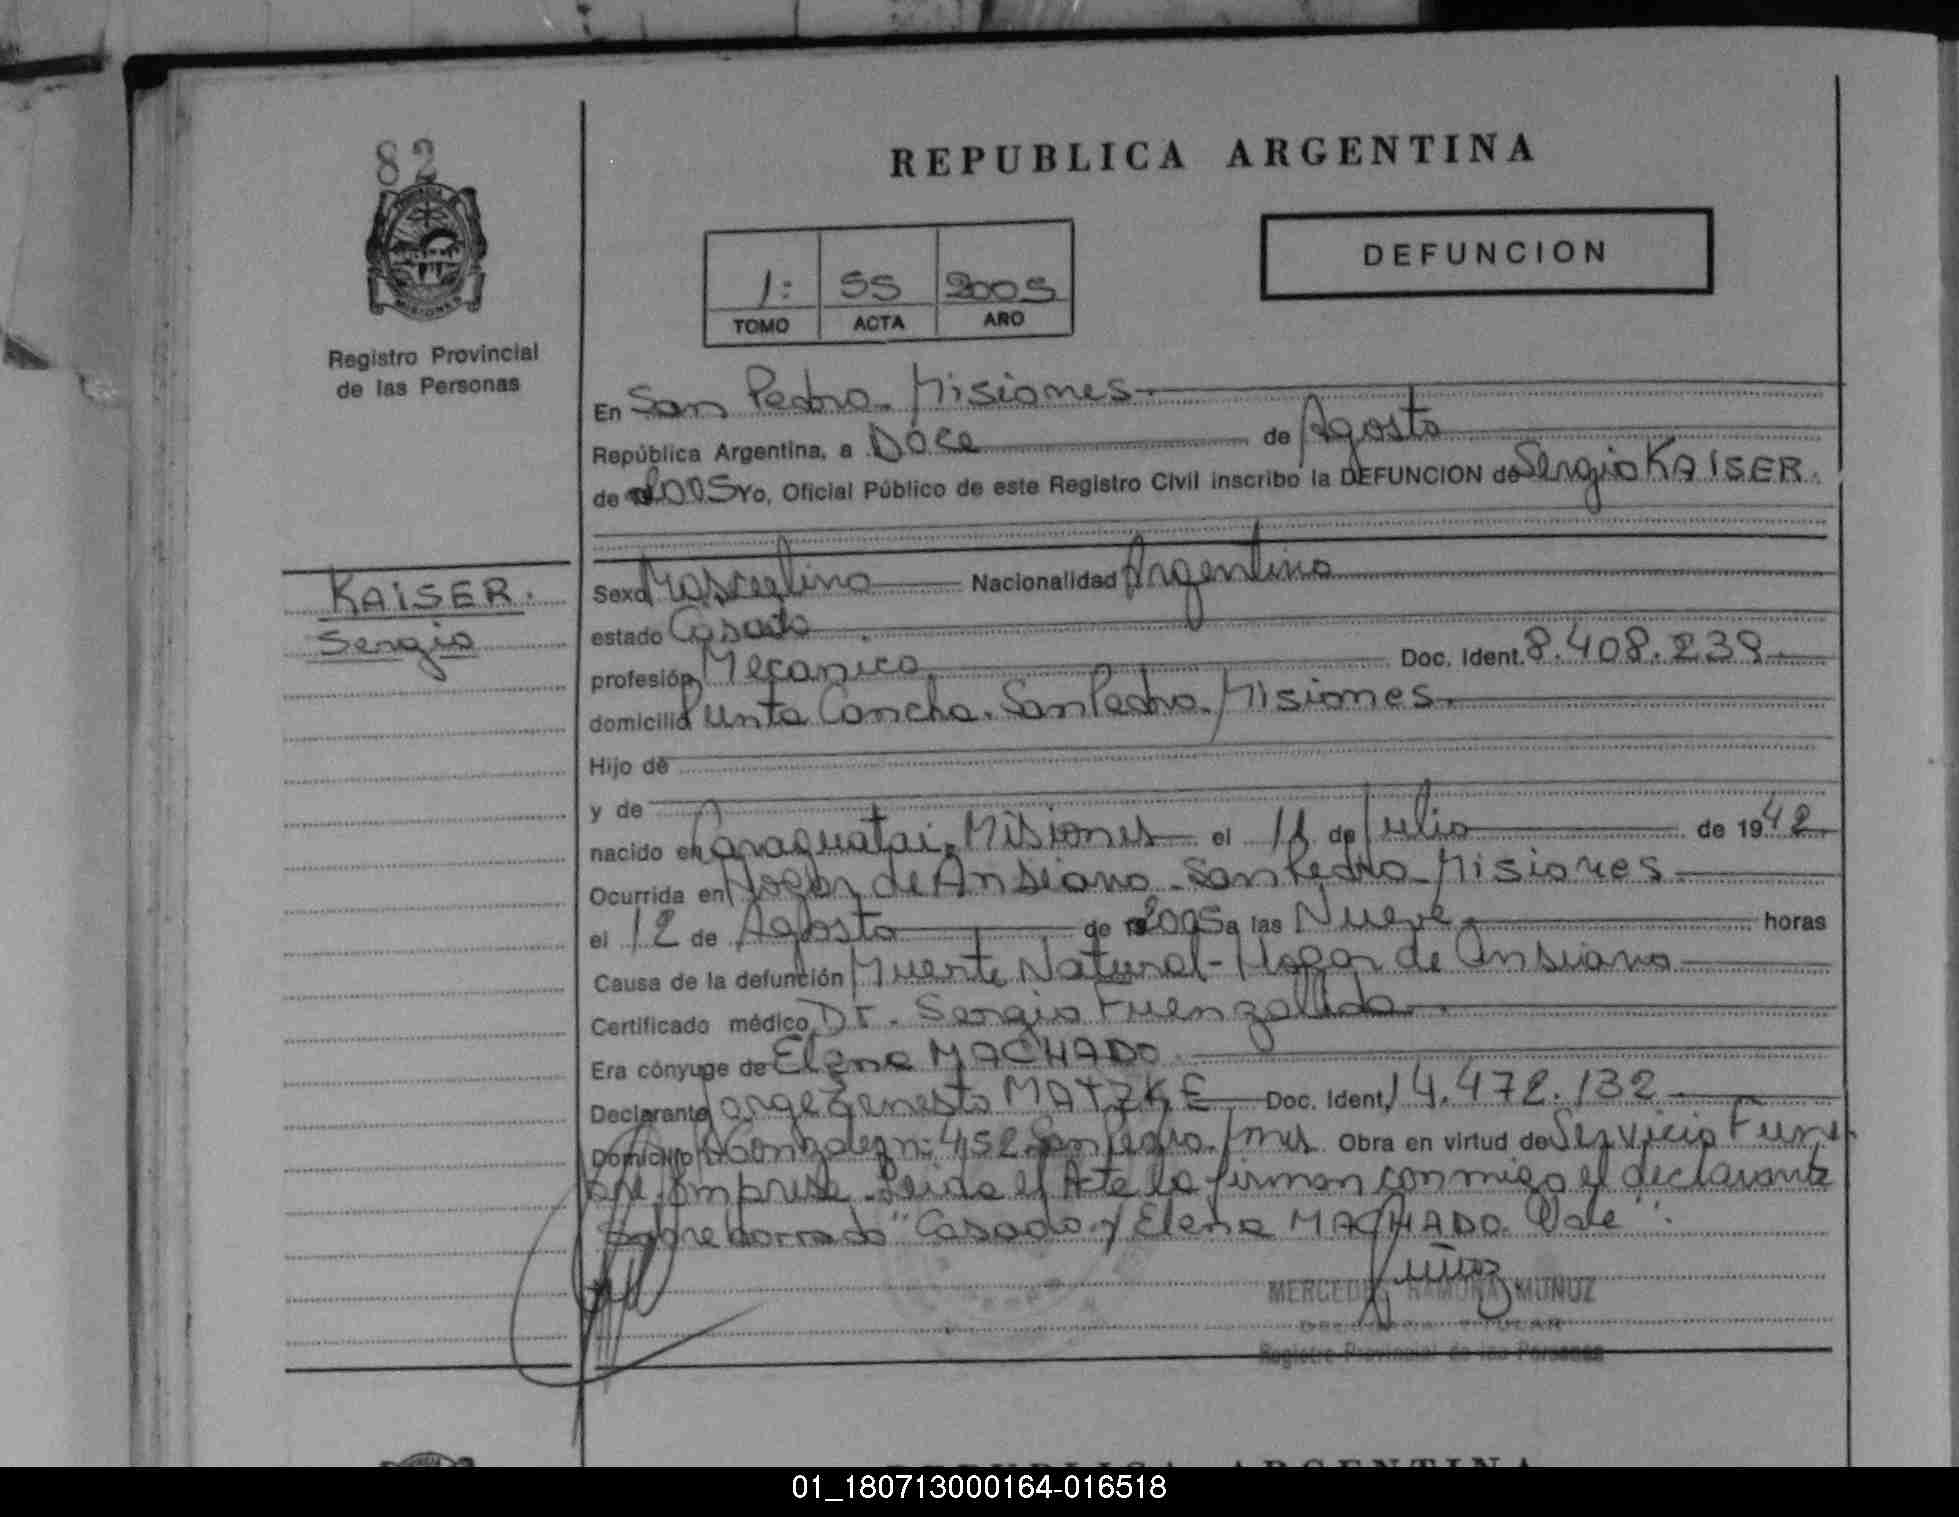 82
REPUBLICA ARGENTINA
DEFUNCION
1: 55 2005
TOMO ACTA AÑO
Registro Provincial
de las Personas
MISIONES
KAISER.
Sergio
En San Pedro. Misiones.
República Argentina, a Doce de Agosto
de 2005 Yo, Oficial Público de este Registro Civil inscribo la DEFUNCION de Sergio KAISER.
Sexo Masculino Nacionalidad Argentino
estado Casado
profesión Mecanico. Doc. Ident. 8.408.239
domicilio Punta Concha. San Pedro. Misiones.
Hijo de
y de
nacido en Caraguatai. Misiones el 11 de Julio de 1942
Ocurrida en Hogar de Ansiano - San Pedro - Misiones
el 12 de Agosto de 2005 a las Nueve horas
Causa de la defunción Muerte Natural - Hogar de Ansiano
Certificado médico Dr. Sergio Fuenzallida.
Era cónyuge de Elena MACHADO.
Declarante Jorge Ernesto MATZKE Doc. Ident. 14.472.132
Domicilio Gonzalez nº 452 San Pedro. Mns. Obra en virtud de Servicio Fune
bre Empresa. Leida el Acta la firman conmigo el declarante
Sobre borrado "Casado y Elena MACHADO. Vale".
MERCEDES RAMONA MUÑOZ
Registro Provincial de las Personas
REPUBLICA ARGENTINA
01_180713000164-016518